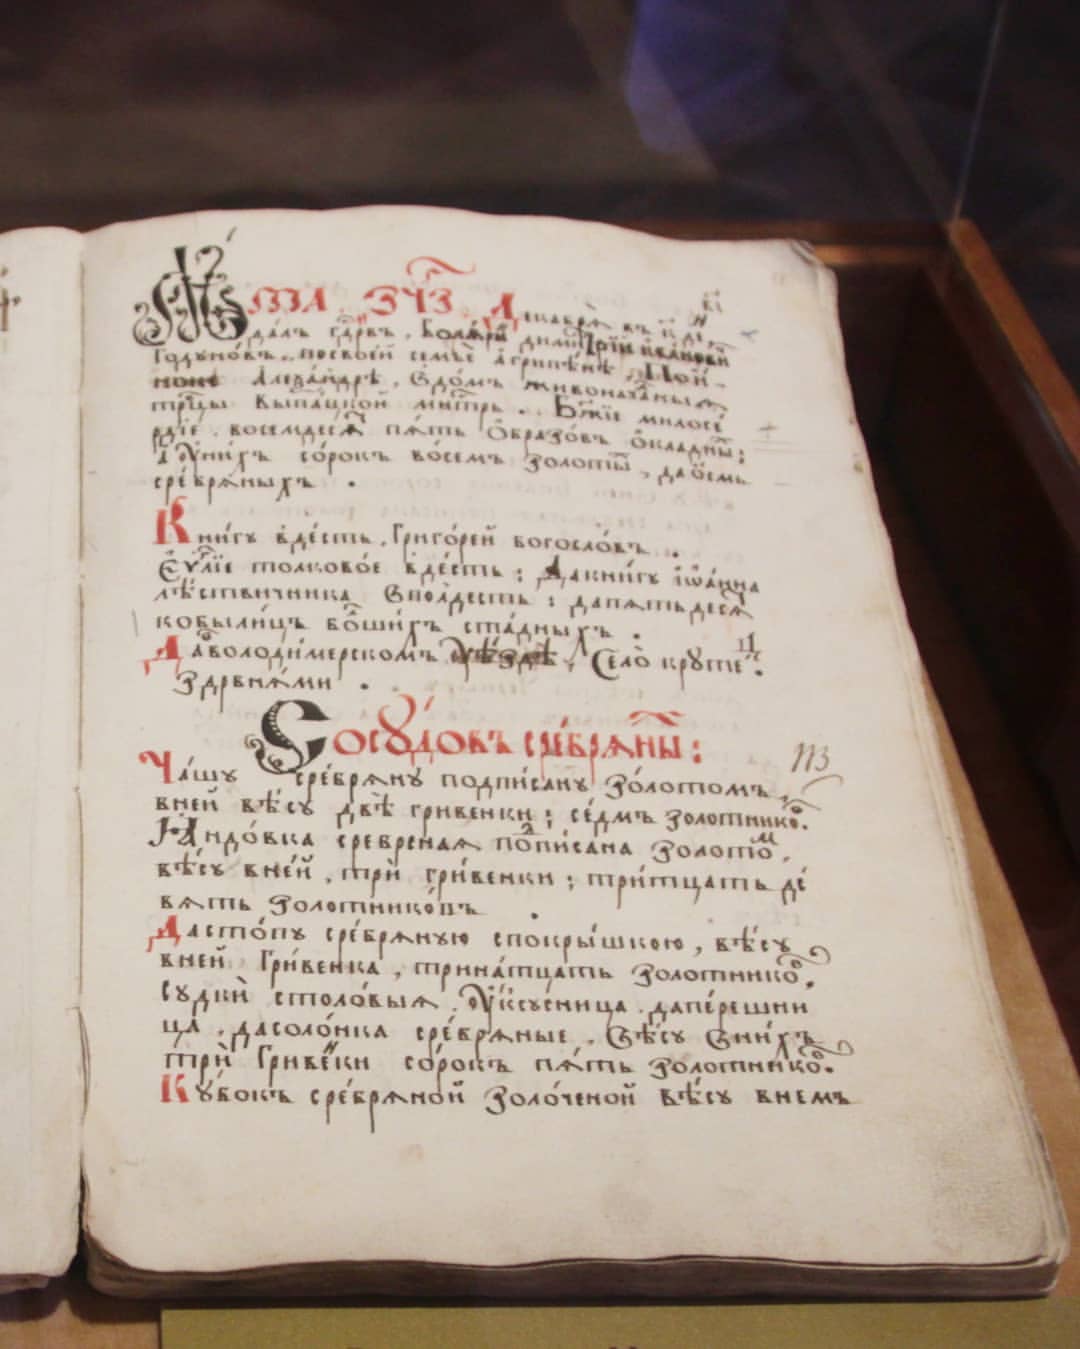 Лѣта ЗЧЗ Декабря въ
далъ гдрвъ. Боляринъ димитрїи ивановй
Годуновъ. посвоей семье агрипѣне,
Алеѯандрѣ, Вдомъ живоначалныѧ
трⷪцы Выпацкой мнтрь. Бжїе милосе
рдїе. восемдесѧ пять Образовъ Окладны:
а Унихъ сорокъ восемъ золоты, да осмь
сребряныхъ .
Книгу вдесть, Григорей богословъ .
Еулїе толковое вдесть: Дакнигу Iѡанна
лѣствичника Вполдесть: дапятьдеся
кобылицъ болшихъ стадныхъ .
Даволодимерскомъ Уѣздѣ, Село круте.
здрвнями .
Сосудовъ сребряны:
Чашу сребряну подписану золотомъ, 113
вней вѣсу двѣ гривенки; седмъ золотнико.
Яндовка сребреная пописана золотом,
вѣсу вней, три гривенки; тритцать де
вять золотниковъ .
Достопу сребряную спокрышкою, вѣсу
вней Гривенка, тринатцать золотнико.
Судки столовыя, Уксусница. даперешни
ца, дасолонка сребряные. Вѣсу Внихъ
три Гривенки сорокъ пять золотнико.
Кубокъ сребряной золоченой вѣсу внемъ